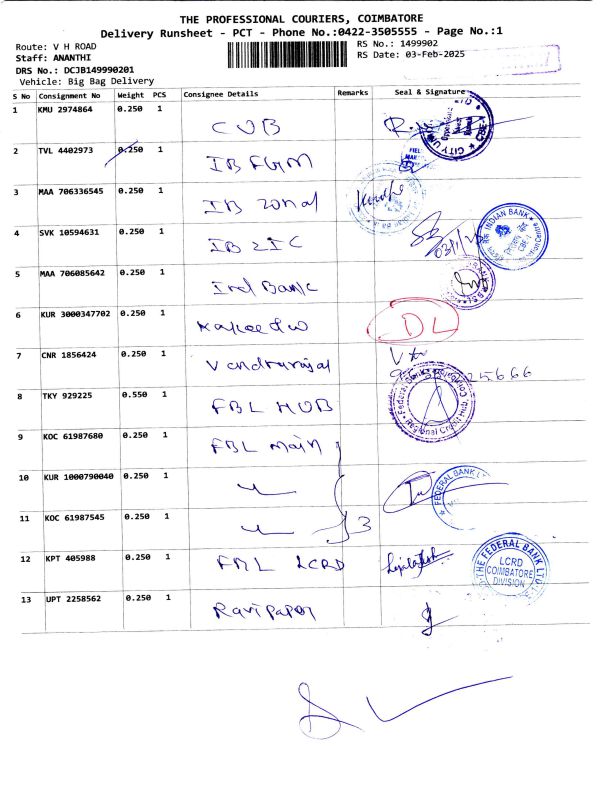 THE PROFESSIONAL COURIERS, COIMBATORE
Delivery Runsheet - PCT - Phone No.:0422-3505555 - Page No.:1
Route: V H ROAD
RS No.: 1499902
Staff: ANANTHI
RS Date: 03-Feb-2025
DRS No.: DCJB149990201
Vehicle: Big Bag Delivery
S No Consignment No Weight PCS Consignee Details Remarks Seal & Signature
1 KMU 2974864 0.250 1 CUB
2 TVL 4402973 0.250 1 IB FGM
3 MAA 706336545 0.250 1 IB Zonal
4 SVK 10594631 0.250 1 IB ZIC
INDIAN BANK
5 MAA 706085642 0.250 1 Ind Bank
6 KUR 3000347702 0.250 1 DL
7 CNR 1856424 0.250 1
8 TKY 929225 0.550 1 FBL HUB
Regional Credit Hub
9 KOC 61987680 0.250 1 FBL main
10 KUR 1000790040 0.250 1
FEDERAL BANK
11 KOC 61987545 0.250 1 3
12 KPT 405988 0.250 1 FBL LCRD
THE FEDERAL BANK LTD
LCRD
COIMBATORE
DIVISION
13 UPT 2258562 0.250 1 Ravi Paper